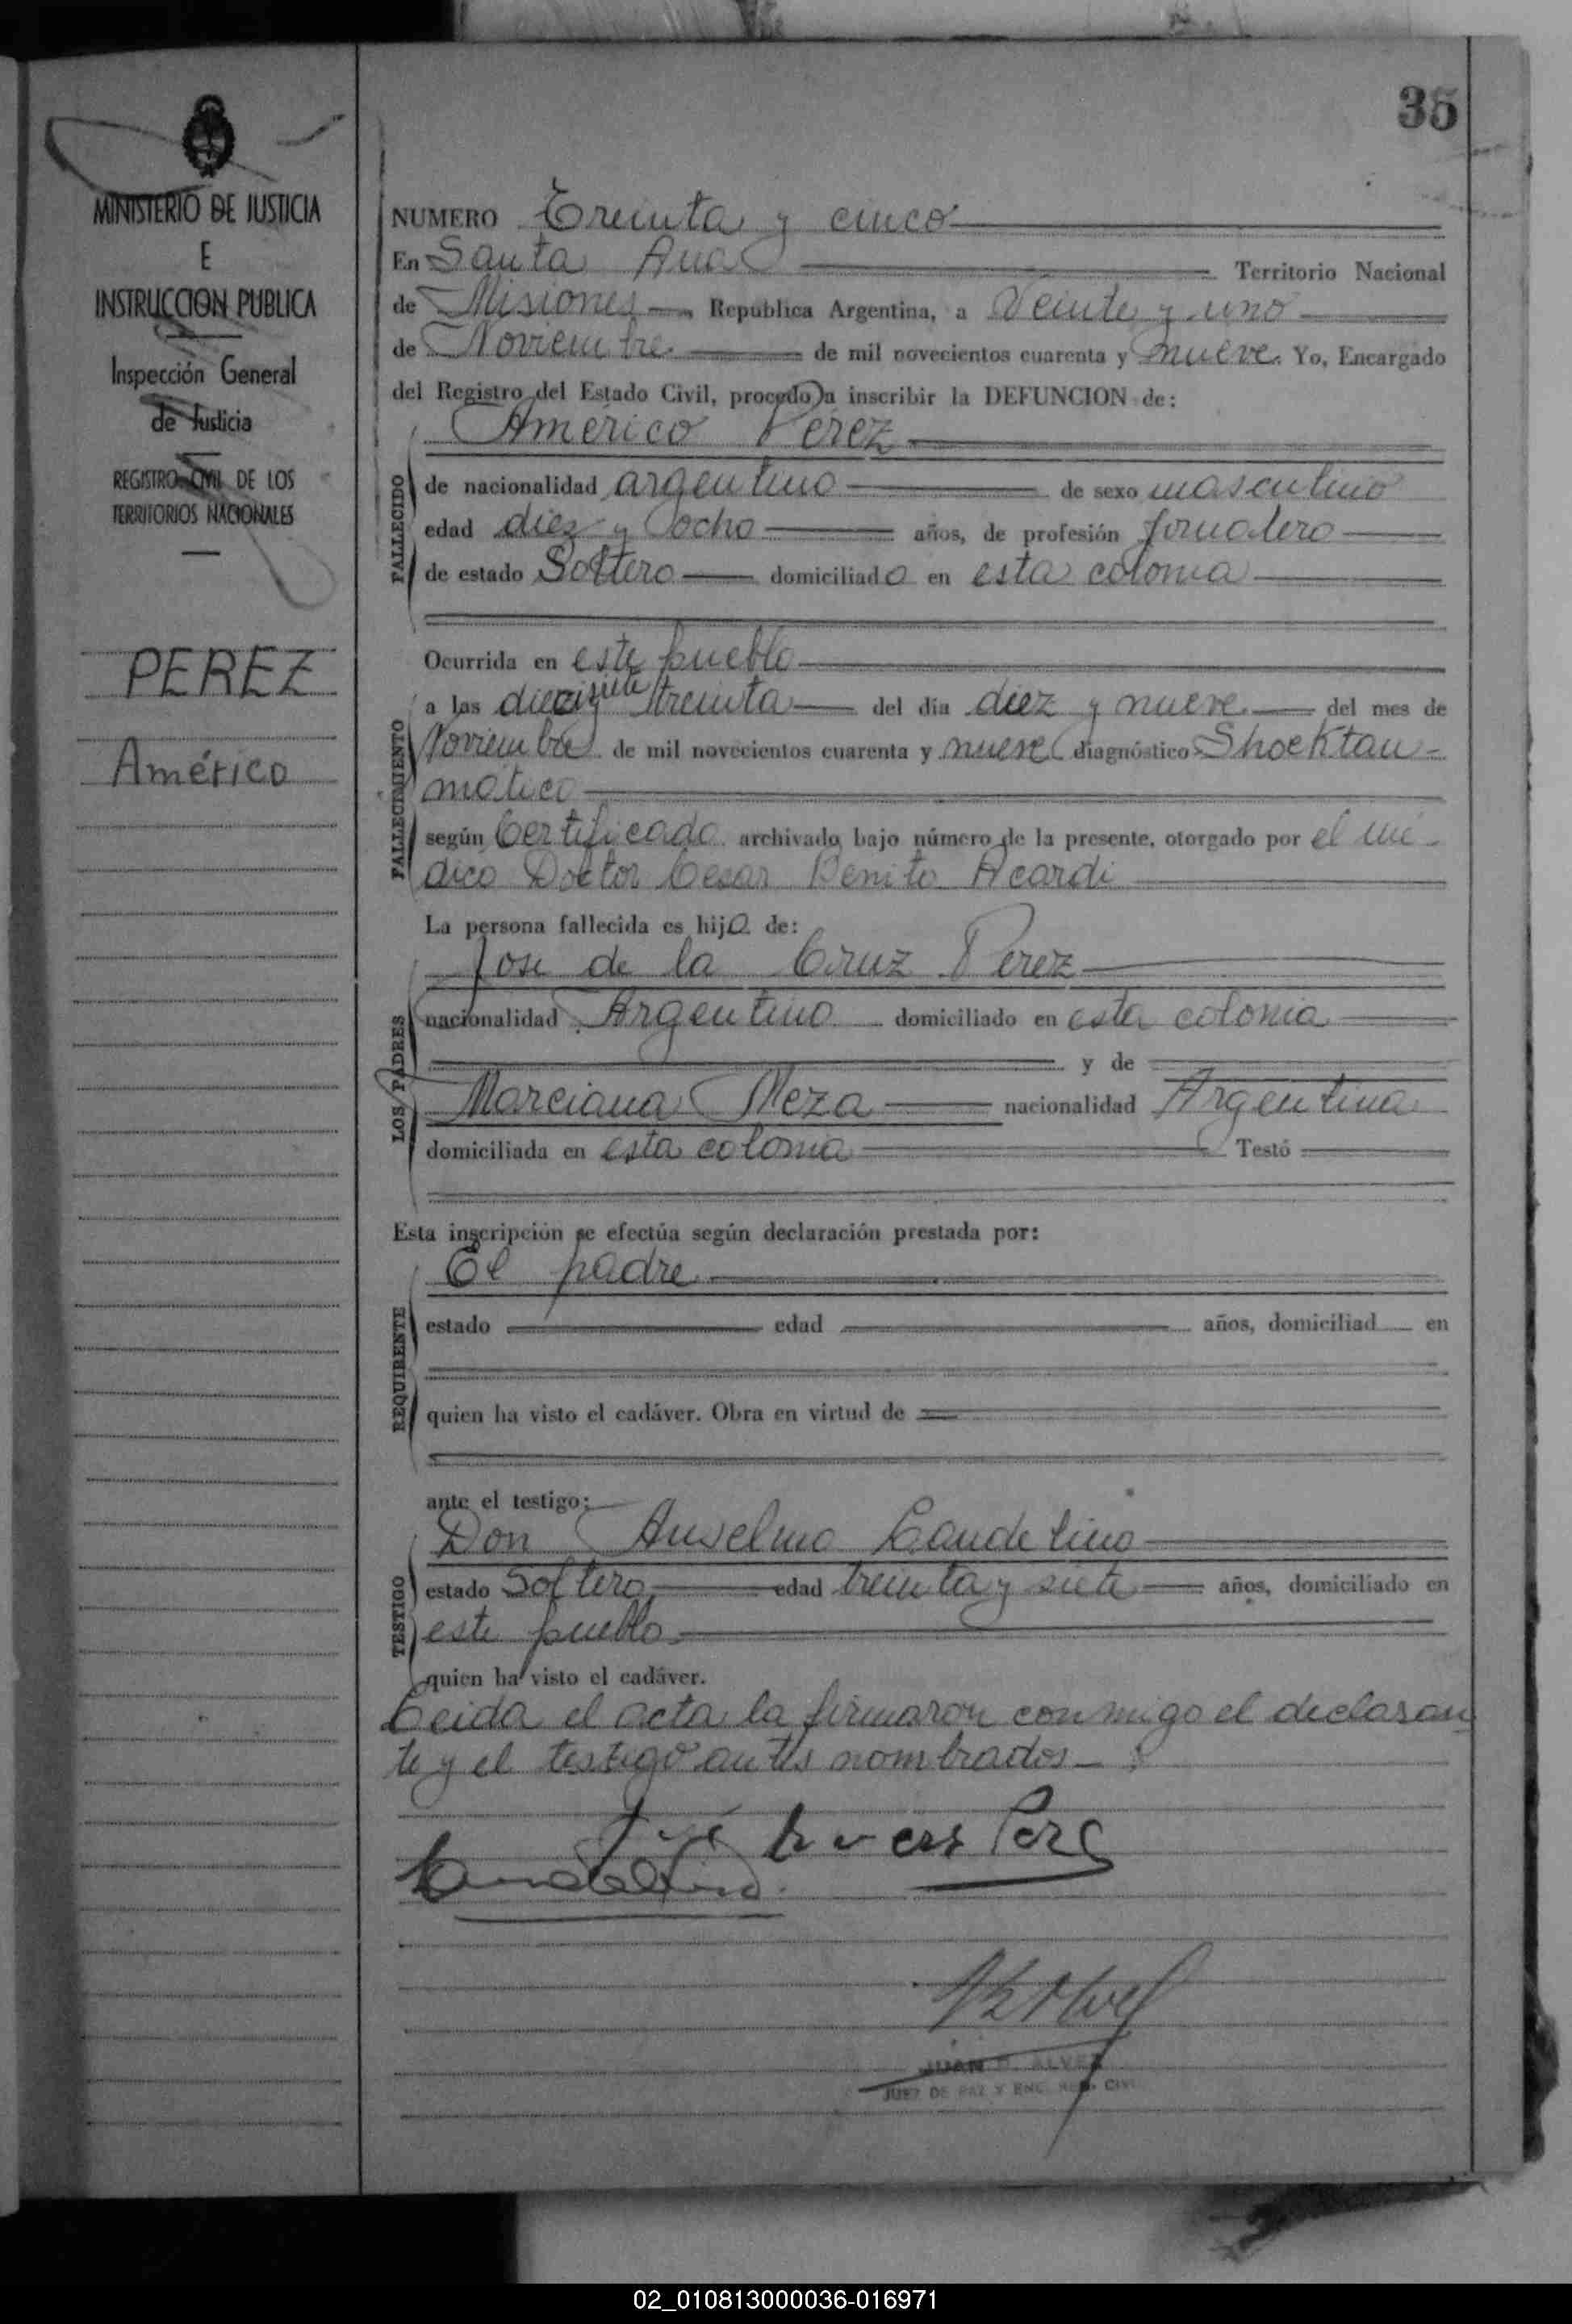 35
MINISTERIO DE JUSTICIA
E
INSTRUCCION PUBLICA
Inspección General
de Justicia
REGISTRO CIVIL DE LOS
TERRITORIOS NACIONALES
PEREZ
Américo
NUMERO Treinta y cinco
En Santa Ana Territorio Nacional
de Misiones República Argentina, a Veinte y uno
de Noviembre de mil novecientos cuarenta y nueve. Yo, Encargado
del Registro del Estado Civil, procedo a inscribir la DEFUNCION de:
Américo Pérez
FALLECIDO
de nacionalidad argentino de sexo masculino
edad diez y ocho años, de profesión jornalero
de estado Soltero domiciliado en esta colonia
Ocurrida en este pueblo
FALLECIMIENTO
a las diecisiete y treinta del día diez y nueve del mes de
Noviembre de mil novecientos cuarenta y nueve diagnóstico Shocktau-
matico
según Certificado archivado bajo número de la presente, otorgado por el mé-
dico Doctor Cesar Benito Acardi
La persona fallecida es hijo de:
LOS PADRES
Jose de la Cruz Perez
nacionalidad Argentino domiciliado en esta colonia
y de
Marciana Meza nacionalidad Argentina
domiciliada en esta colonia Testó
Esta inscripción se efectúa según declaración prestada por:
REQUIRENTE
El padre
estado edad años, domiciliad en
quien ha visto el cadáver. Obra en virtud de
ante el testigo:
TESTIGO
Don Anselmo Candelino
estado Soltero edad treinta y siete años, domiciliado en
este pueblo
quien ha visto el cadáver.
Leida el acta la firmaron conmigo el declaran
te y el testigo antes nombrados
José
JUAN ALVEZ
JUEZ DE PAZ Y ENC. REG. CIVIL
02_010813000036-016971